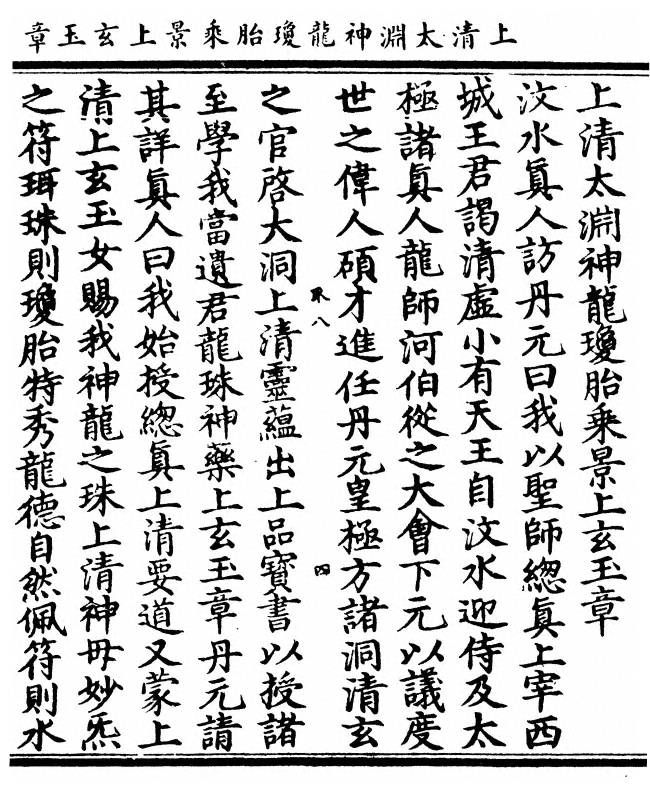 上清太淵神龍瓊胎乘景上玄玉章
上清太淵神龍瓊胎乘景上玄玉章
汶水眞人訪丹元曰我以聖師緫眞上宰西
城王君謁清虛小有天王自汶水迎侍及太
極諸眞人龍師河伯從之大會下元以議度
世之偉人碩才進任丹元皇極方諸洞清玄
之官啓大洞上清靈蘊出上品寶書以授諸
至學我當遺君龍珠神藥上玄玉章丹元請
其詳眞人曰我始授緫眞上清要道又蒙上
清上玄玉女賜我神龍之珠上清神毋妙炁
之符珥珠則瓊胎特秀龍德自然佩符則水